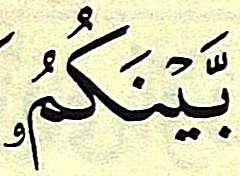 بَّيْنَكُمُۥ